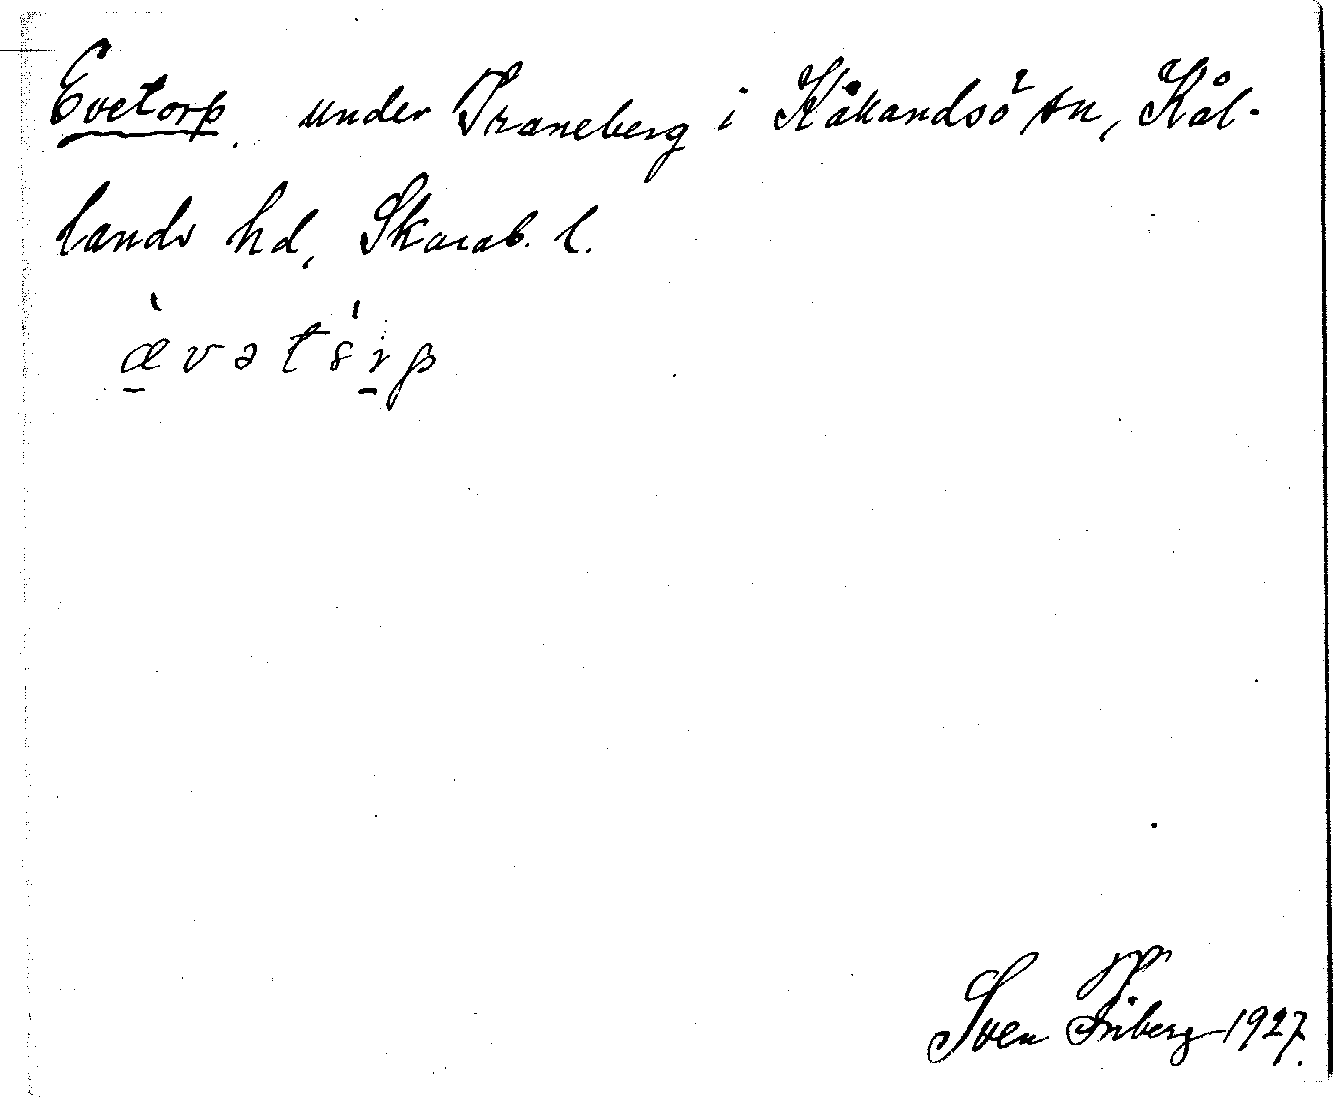 Evetorp. under Traneberg i Kållandsö sn, Kål-
lands hd, Skarab. l.
æ̀vətórp
Sven Friberg 1927.